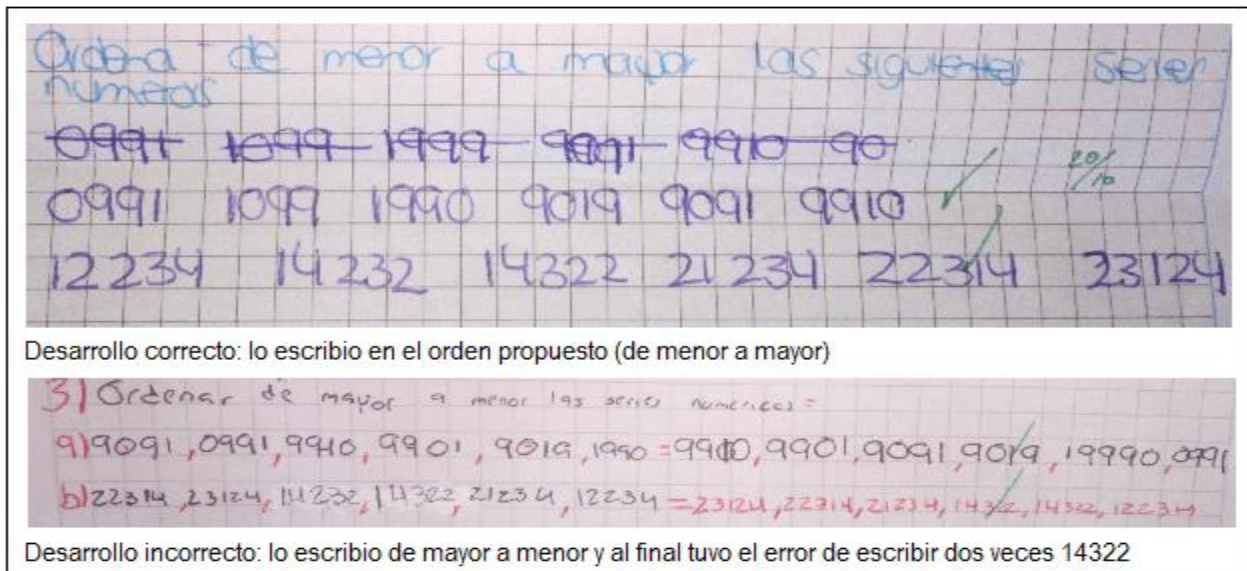 Ordena de menor a mayor las siguientes series
numeas
0991 1099 1999 9091 9910 90
0991 1099 1990 9019 9091 9910 20/10
12234 14232 14322 21234 22314 23124
Desarrollo correcto: lo escribio en el orden propuesto (de menor a mayor)
3) Ordenar de mayor a menor las series numericas =
a) 9091, 0991, 9910, 9901, 9019, 1990 = 9910, 9901, 9091, 9019, 19990, 0991
b) 22314, 23124, 14232, 14322, 21234, 12234 = 23124, 22314, 21234, 14322, 14322, 12234
Desarrollo incorrecto: lo escribio de mayor a menor y al final tuvo el error de escribir dos veces 14322